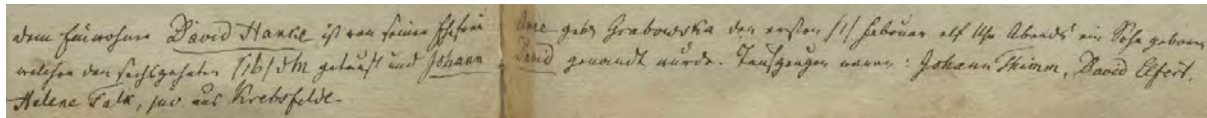 dem Einwohner David Hanke ist von seiner Ehefrau Anne geb. Grabowska den ersten /1/ Februar elf Uhr Abends ein Sohn geboren
welcher den sechszehnten /16/ getauft und Johann David genannt wurde. Taufzeugen waren: Johann Thimm, David Elfert,
Helene Falk, aus Krebsfelde.